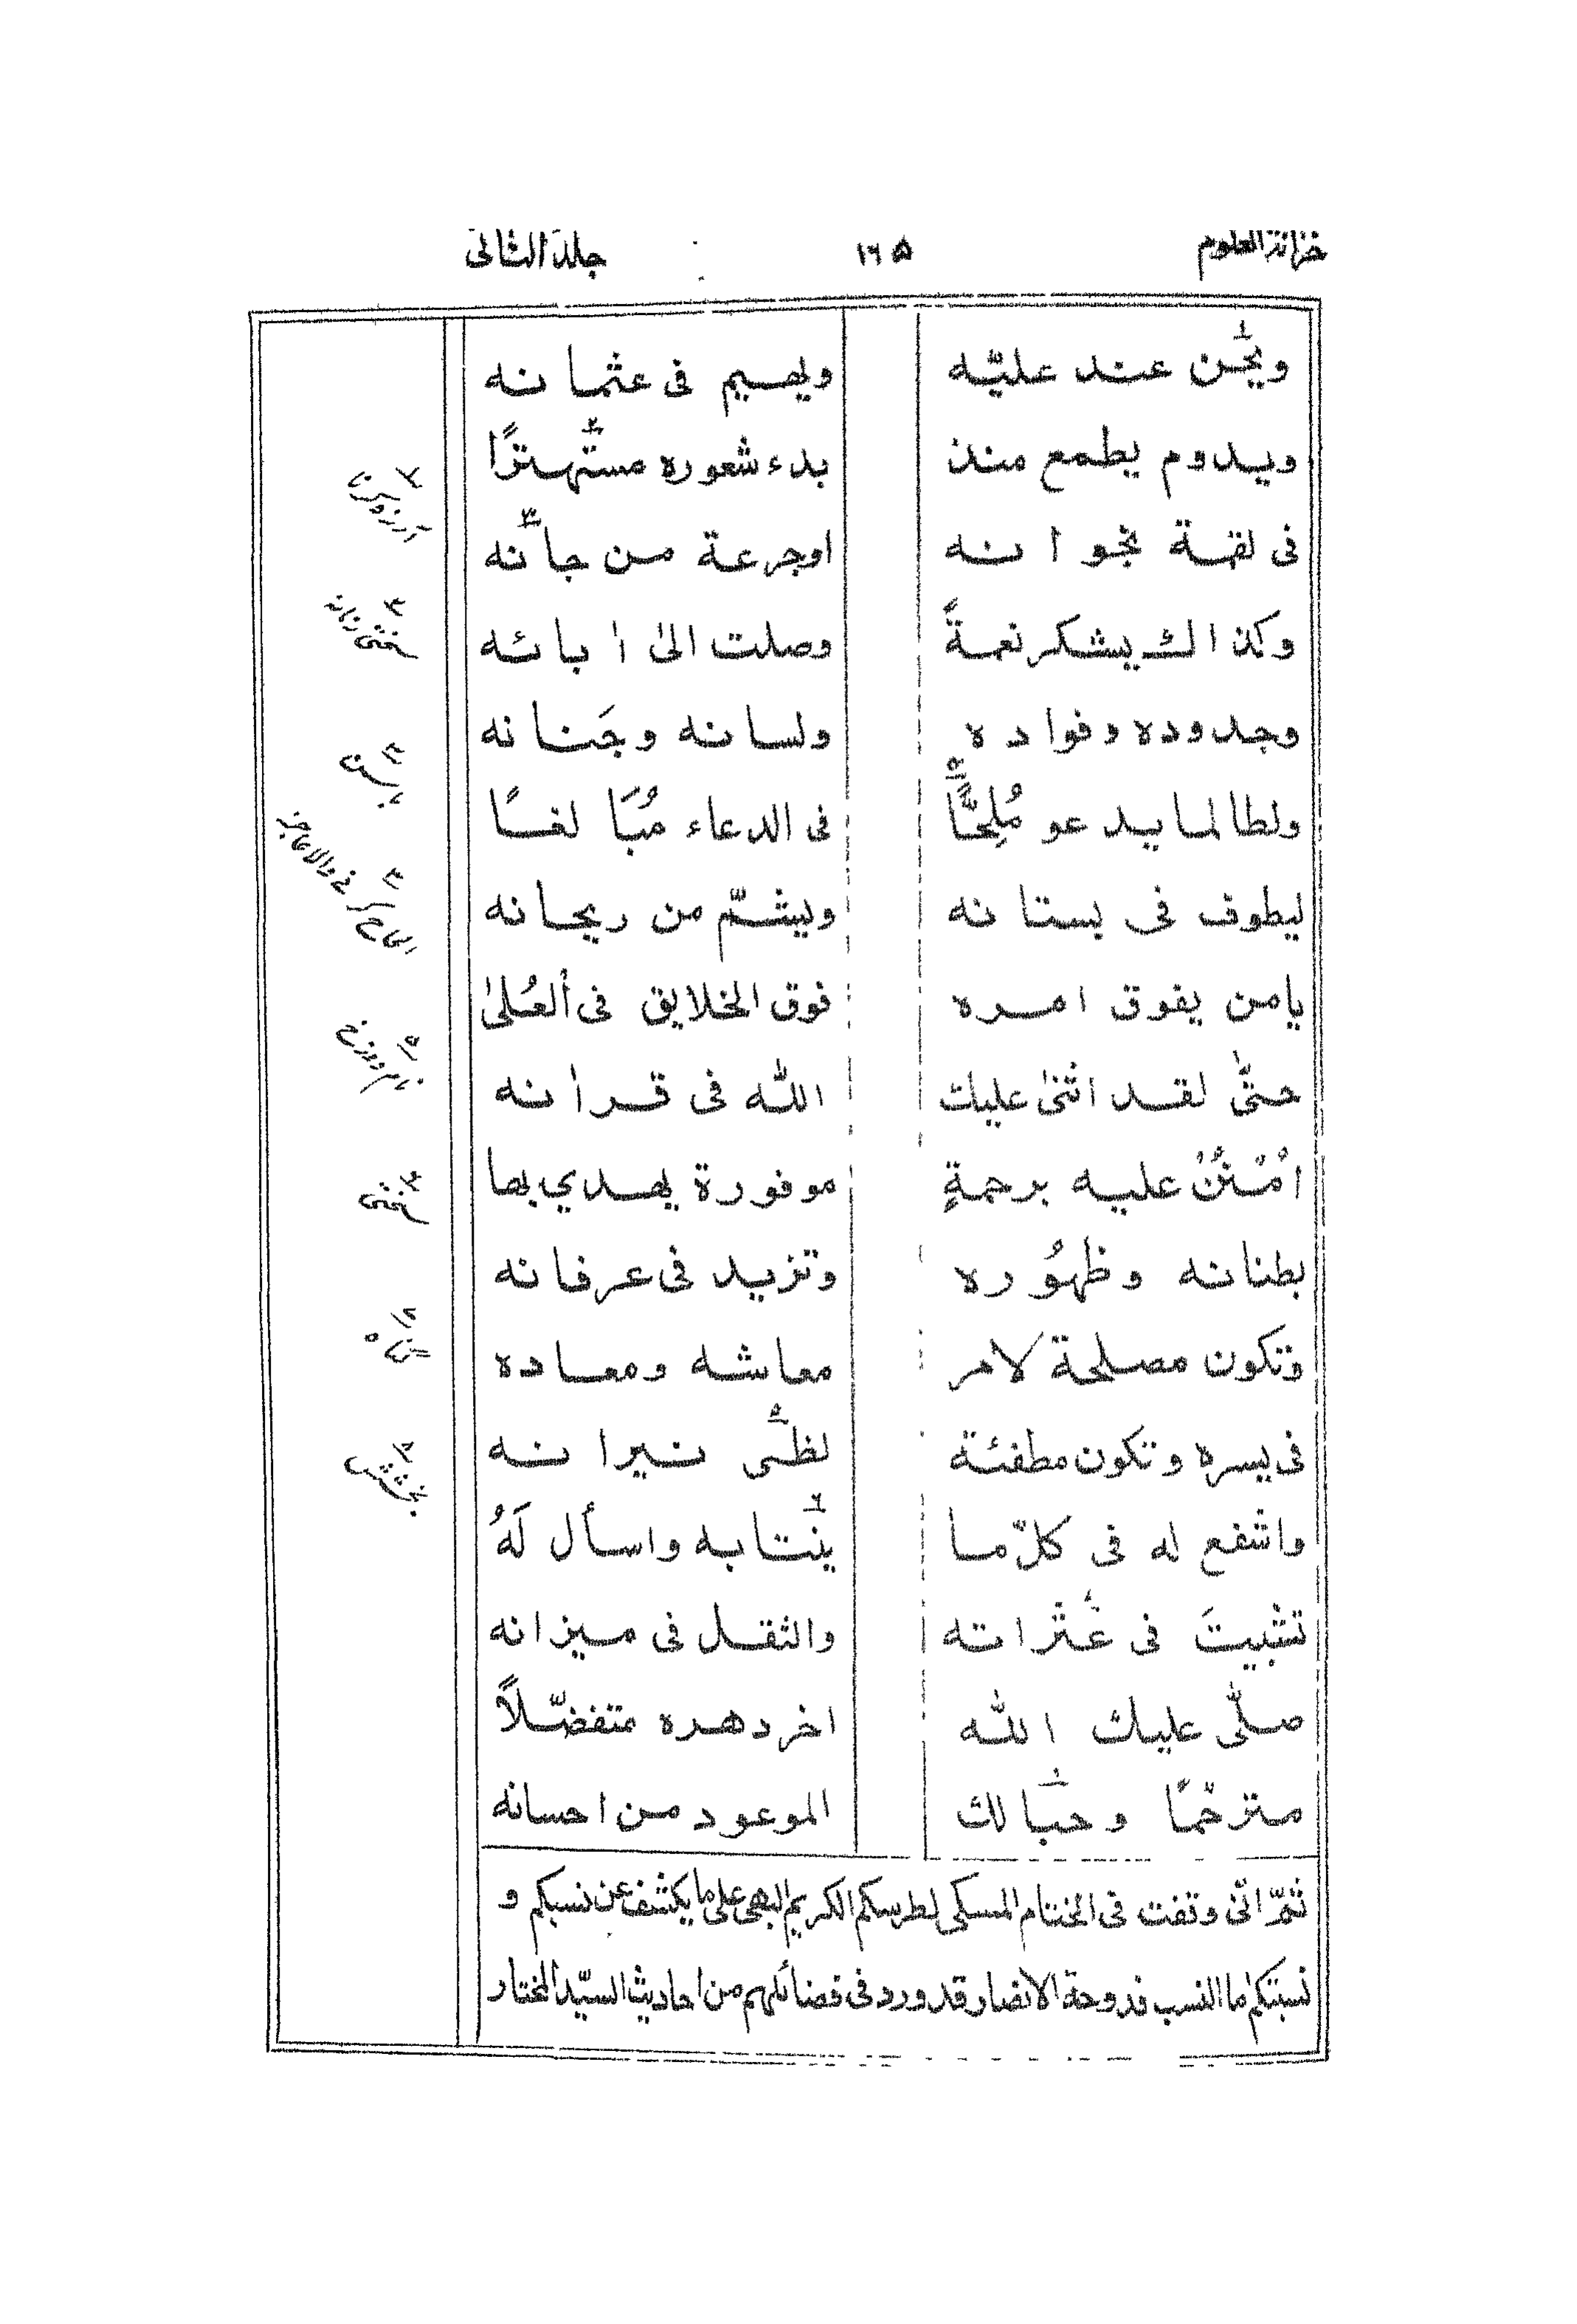 خزانة العلوم ١٦٥ جلد الثانی
ويحن عند عليّه ويهيم فی عثمانه
ويدوم يطمع منذ بدء شعوره مستهترًا
فی لقمة بخوانه اوجرعة من جانه
وكذالك يشكر نعمةً وصلت الىٰ اٰبائه
وجدوده وفواده ولسانه وجَنانه
ولطالما يدعو مُلِحًّا فی الدعاء مُبَالغًا
ليطوف فی بستانه ويشمّ من ريحانه
يامن يفوق امره فوق الخلايق فی العُلیٰ
حتّٰی لقد اثنیٰ عليك اللّٰه فی قراٰنه
اُمْنُنْ عليه برحمةٍ موفورة يهدي بها
بطنانه وظهُوره وتزيد فی عرفانه
وتكون مصلحة لامر معاشه ومعاده
فی يسره وتكون مطفئة لظی نيرانه
واشفع له فی كلّ ما ينتابه واسأل لَهُ
تثبيتَ فی عَثْراته والثقل فی ميزانه
صلّٰی عليك اللّٰه اخر دهره متفضّلاً
مترحّمًا وحبا لك الموعود من احسانه
ثمّ انّی وقفت فی الختام المسكی لطرسكم الكريم البهی علی ما يكشف عن نسبكم و
نسبتكم اما النسب فدوحة الانصار قد ورد فی فضائلهم من احاديث السيّد المختار
آرزو کردن
سختی زمانه
سختی
گناه
بخشش